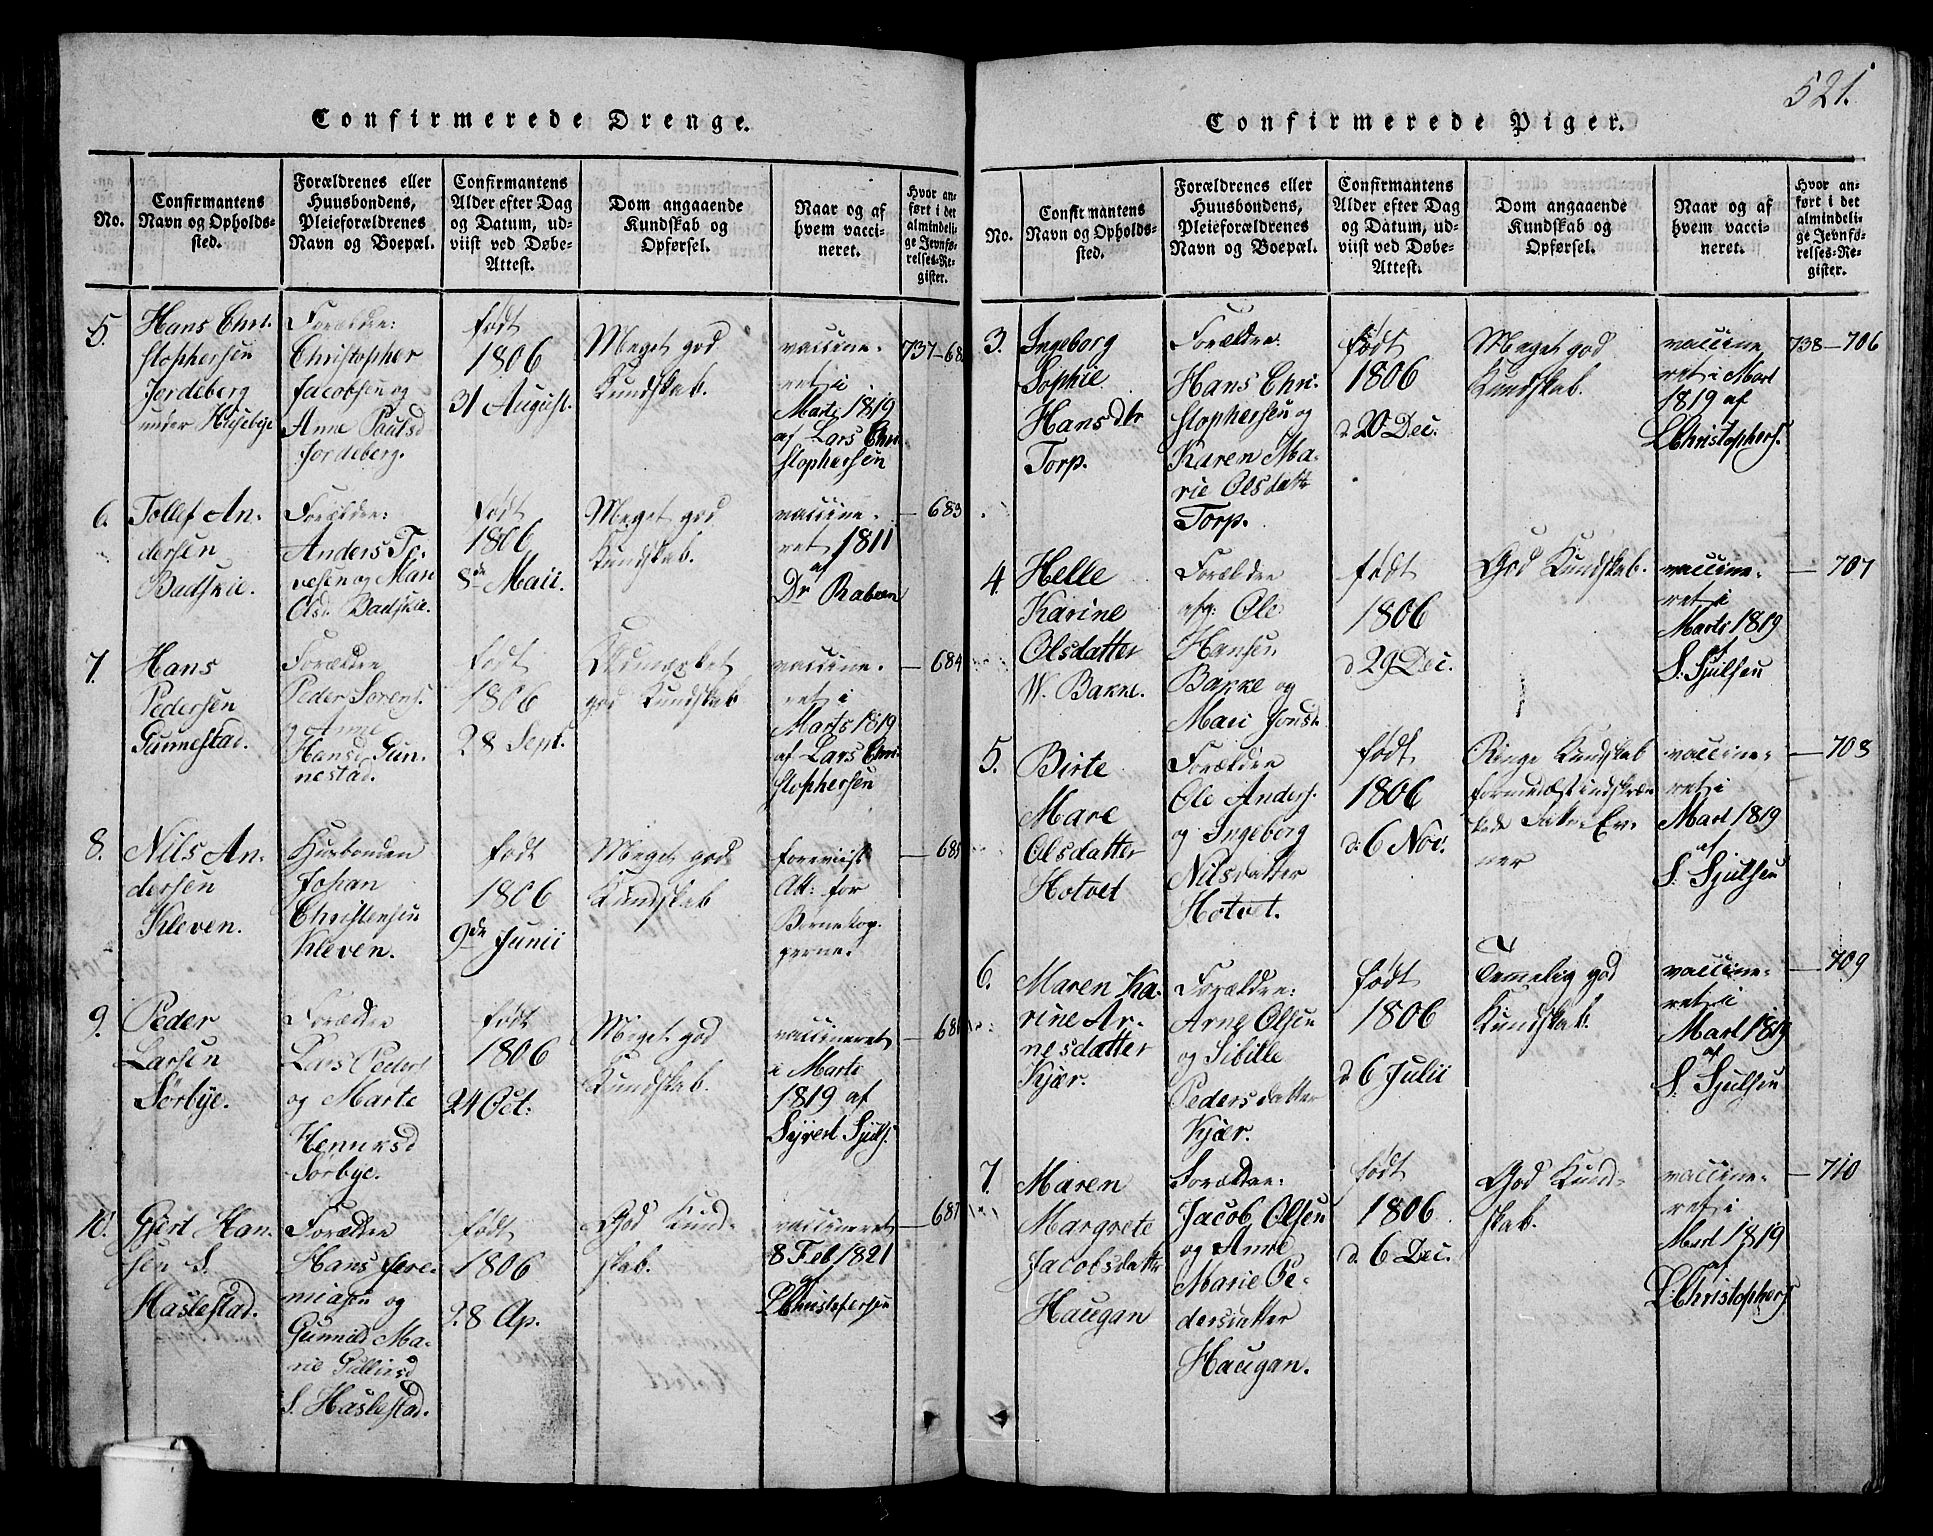 521.
Confirmerede Drenge.
No.
Confirmantens
Navn og Opholds-
sted.
Forældrenes eller
Huusbondens,
Pleieforældrenes
Navn og Boepæl.
Confirmantens
Alder efter Dag
og Datum, ud-
viist ved Døbe-
Attest.
Dom angaaende
Kundskab og
Opførsel.
Naar og af
hvem vacci-
neret.
Hvor an-
ført i det
almindeli-
ge Jevnfø-
relses-Re-
gister.
5.
Hans Chri-
stophersen
Jordeberg
under Husebye
Forældre:
Christopher
Jacobsen og
Anne Paulsd
Jordeberg.
født
1806
31 August.
Meget god
Kundskab.
vaccine-
ret i
Marti 1819
af Lars Chri-
stophersen
737-68
6.
Tollef An-
dersen
Badskie.
Forældre:
Anders To-
vesen og Mari
Olsd. Badskie.
født
1806
8de Maii.
Meget god
Kundskab.
vaccine-
ret 1811
af
Dr Raben
683
7.
Hans
Pedersen
Gunnestad.
Forældre
Peder Sørens.
og Anne
Hansd. Gun-
nestad.
født
1806
28 Sept.
Udmærket
god Kundskab
vaccine-
ret i
Marts 1819
af Lars Chri-
stophersen
684
8.
Nils An-
dersen
Kleven.
Husbonden
Johan
Christensen
Kleven.
født
1806
9de Junii
Meget god
Kundskab
foreviist
Att: for
Børnekop-
perne.
685
9.
Peder
Larsen
Sørbye.
Forældre
Lars Peders
og Marte
Henriksd
Sørbye.
født
1806
24 Oct:
Meget god
Kundskab.
vaccineret
i Marti
1819 af
Syvert Sjuls.
686
10.
Gjert Han-
sen S.
Haslestad.
Forældre
Hans Jere-
miasen og
Gunnild Ma-
rie Gulliksd
S. Haslestad.
født
1806
28 Ap.
God Kund-
skab.
vaccineret
8 Feb 1821
af
L Christofersen
687
Confirmerede Piger.
No.
Confirmantens
Navn og Opholds-
sted.
Forældrenes eller
Huusbondens,
Pleieforældrenes
Navn og Boepæl.
Confirmantens
Alder efter Dag
og Datum, ud-
viist ved Døbe-
Attest.
Dom angaaende
Kundskab og
Opførsel.
Naar og af
hvem vacci-
neret.
Hvor an-
ført i det
almindeli-
ge Jevnfø-
relses-Re-
gister.
3.
Ingeborg
Sophie
Hansdtr
Torp.
Forældre
Hans Chri-
stophersen og
Karen Ma-
rie Olsdattr
Torp.
født
1806
d 20 Dec.
Meget god
Kundskab.
vaccine
ret i Mart
1819 af
L Christophers.
738-706
4.
Helle
Karine
Olsdatter
W. Bakke.
Forældre
afg: Ole
Hansen
Bakke og
Mari Jonsd.
født
1806
d 29 Dec.
God Kundskab.
vaccine-
ret i
Marts 1819
af
S. Sjulsen
707
5.
Birte
Mare
Olsdatter
Hotvet
Forældre
Ole Anders.
og Ingeborg
Nilsdatter
Hotvet.
født
1806
d: 6 Nov.
Ringe Kundskab
formedelst indskræn
kede Siele-Ev-
ner
vaccine-
ret i
Mart 1819
af
S. Sjulsen
708
6.
Maren Ka-
rine Ar-
nesdatter
Kjær.
Forældre:
Arne Olsen
og Sibille
Pedersdatter
Kjær.
født
1806
d 6 Julii
Temmelig god
Kundskab.
vaccine-
ret i
Mart 1819
af
S. Sjulsen
709
7.
Maren
Margrete
Jacobsdattr
Haugan
Forældre:
Jacob Olsen
og Anne
Marie Pe-
dersdatter
Haugan.
født
1806
d. 6 Dec.
God Kund-
skab.
vaccine-
ret i
Mart 1819
af
L: Christophers
710